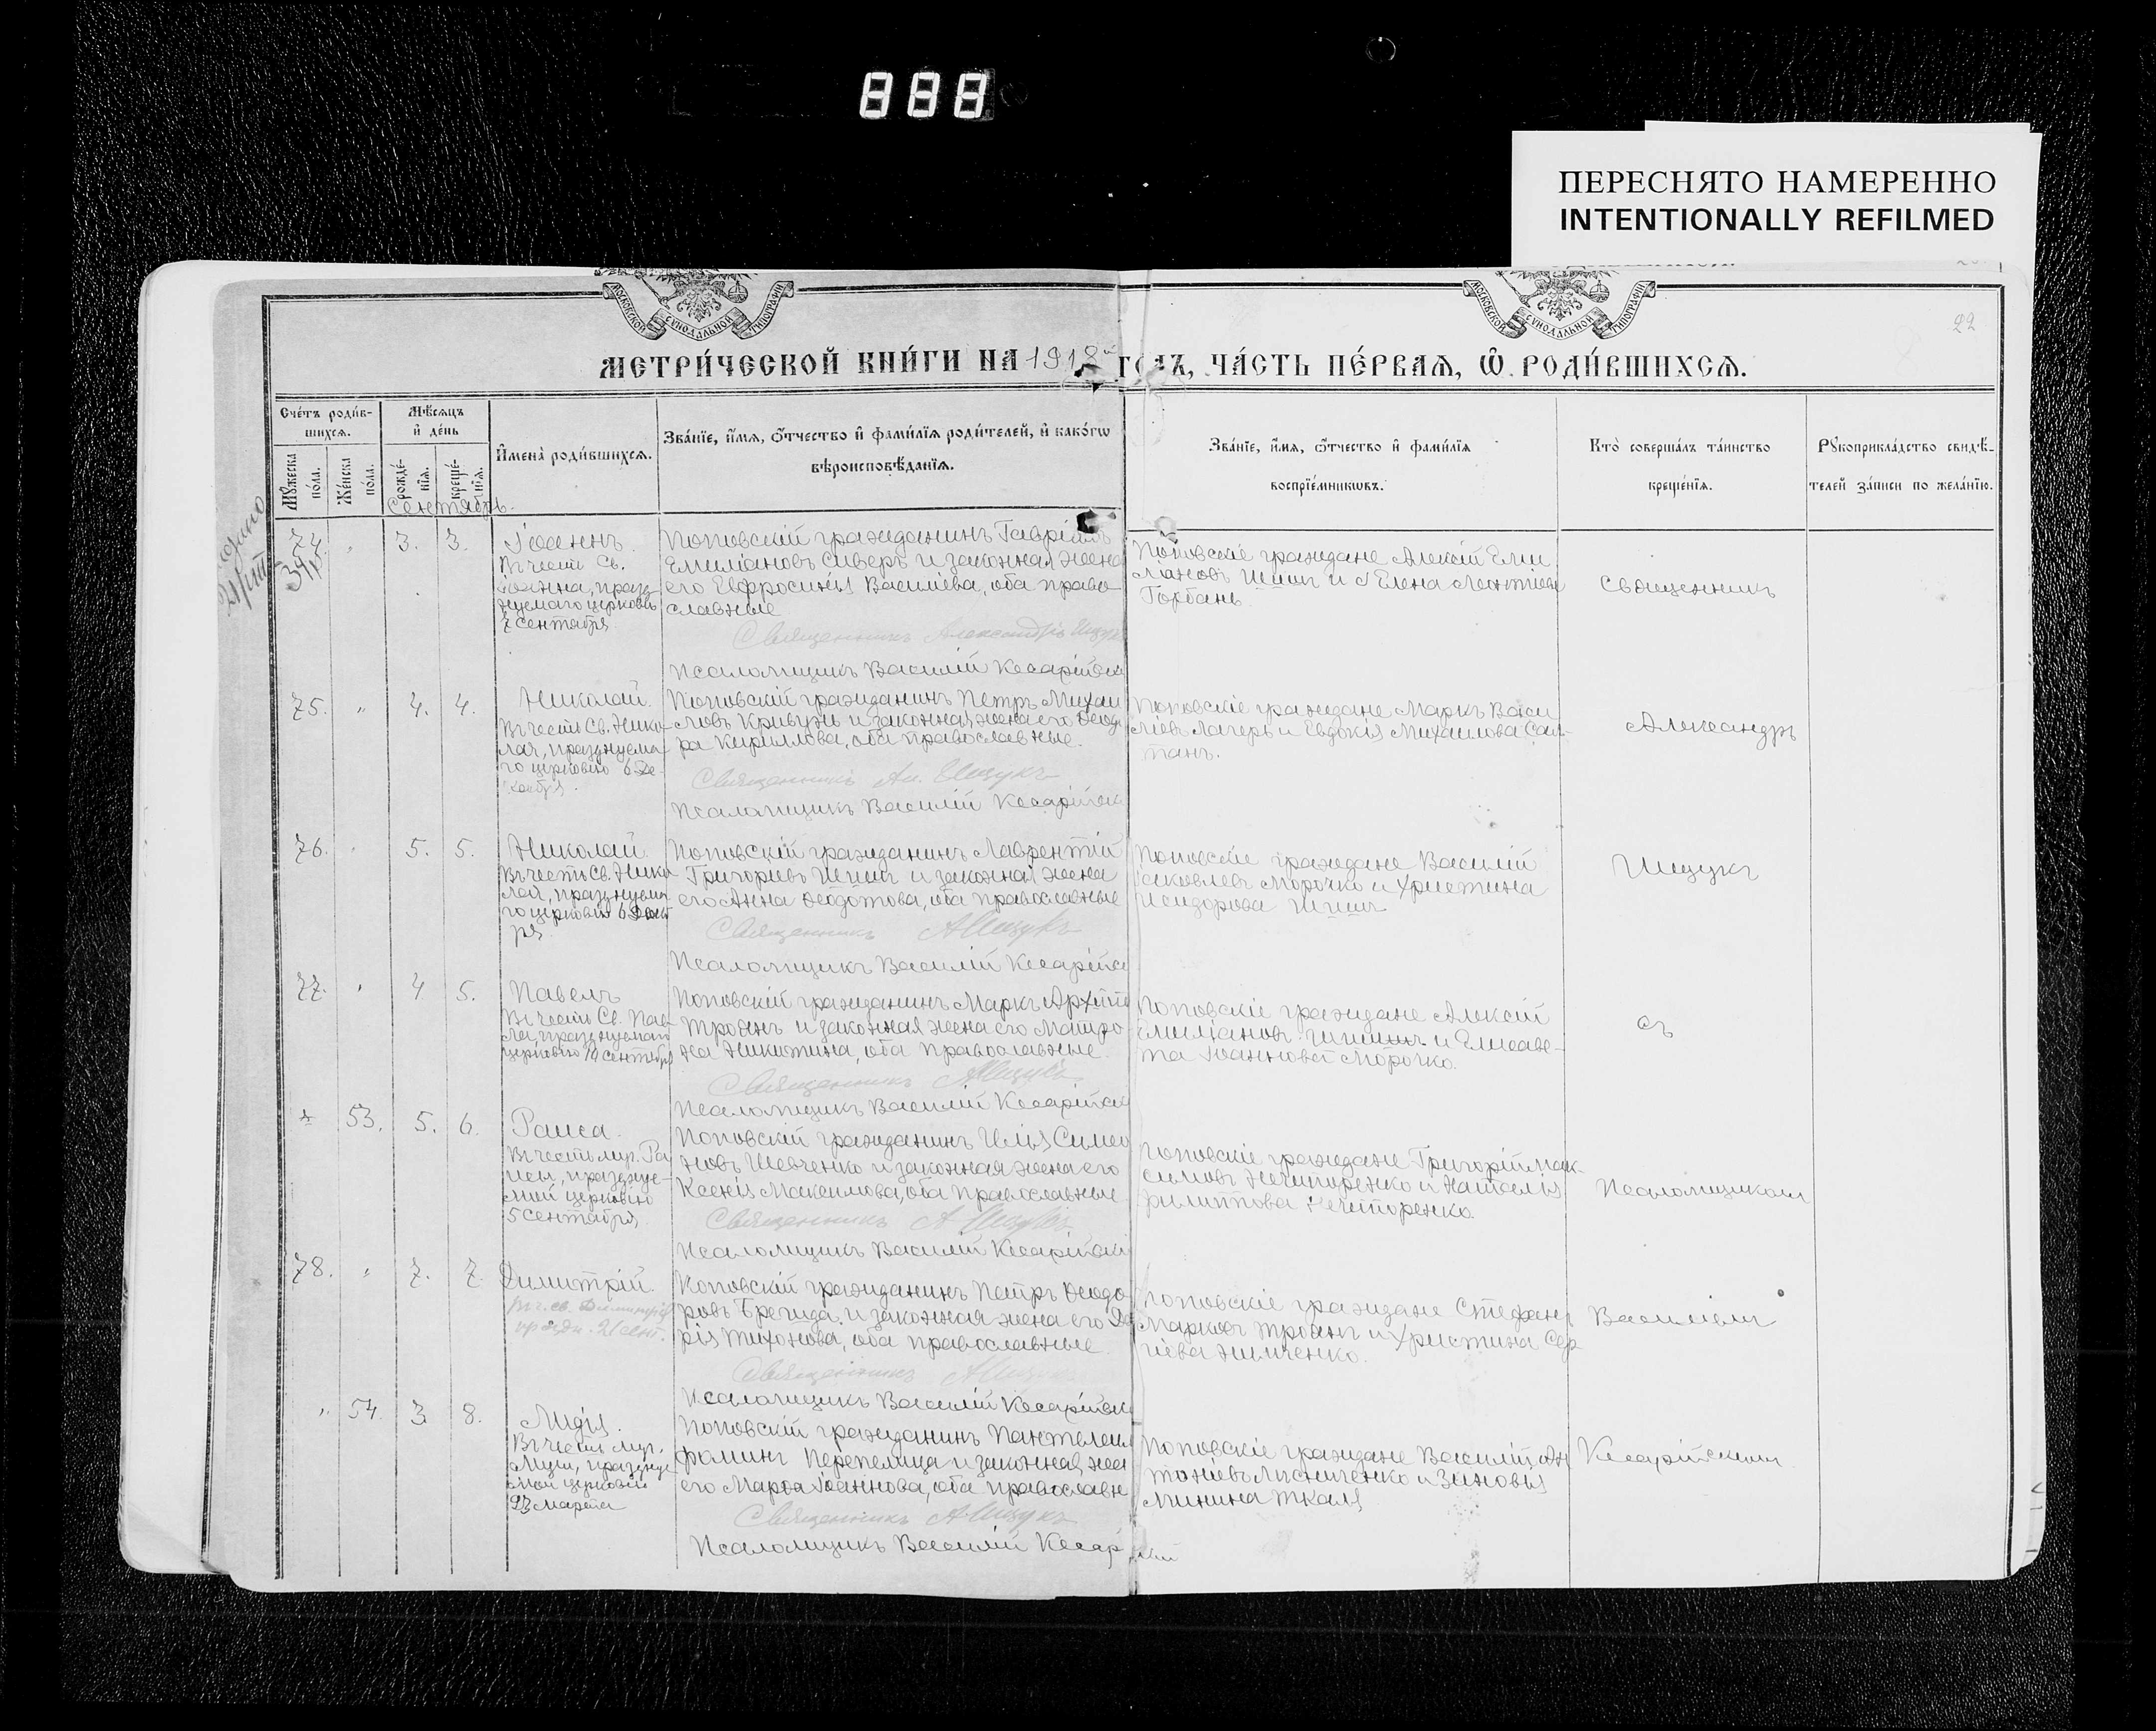 888
ПЕРЕСНЯТО НАМЕРЕННО
INTENTIONALLY REFILMED
МОСКОВСКОЙ СѴНОДАЛЬНОЙ ТИПОГРАФІИ
МОСКОВСКОЙ СѴНОДАЛЬНОЙ ТИПОГРАФІИ
22
МЕТРИ́ЧЕСКОЙ КНИ́ГИ НА 1918й ГОДЪ, ЧА́СТЬ ПЕ́РВАЯ, Ѽ РОДИ́ВШИХСЯ.
Сче́тъ роди́в-
шихся.
Мѣ́сяцъ
и҆ де́нь
Мꙋ́жеска по́ла.
Же́нска по́ла.
рожде́-нїѧ.
креще́-нїѧ.
И҆мена̀ роди́вшихся.
Зва́нїе, и҆́мя, ѻ҆́тчество и҆ фами́лїя роди́телей, и҆ како́гѡ
вѣроисповѣ́данїя.
Зва́нїе, и҆́мя, ѻ҆́тчество и҆ фами́лїя
воспрїе́мникѡвъ.
Кто̀ соверша́лъ та́инство
креще́нїя.
Рꙋкоприкла́дство свидѣ́-
телей за́писи по жела́нїю.
Сентябрь.
74. " 3. 3. Іоаннъ.
Въ честь Св.
Іоанна, празд-
нуемаго церковью
7 сентября
Поповскій гражданинъ Гавріилъ
Емиліановъ Сиверъ и законная жена
его Евфросинія Василіева, оба право-
славные
Священникъ Александръ Ищукъ
Псаломщикъ Василій Кесарійскі
Поповскіе граждане Алексій Еми
ліановъ Шишъ и Елена Леонтіева
Горбань
Священникъ
75. " 4. 4. Николай.
Въ честь Св. Нико-
лая, празднуема-
го церковію 6 Де-
кабря.
Поповскій гражданинъ Петръ Михаи
ловъ Кривузи и законная жена его Ѳеодо
ра Кириллова, оба православные.
Священникъ Ал. Ищукъ
Псаломщикъ Василій Кесарійскі
Поповскіе граждане Маркъ Васи
ліевъ Лагеръ и Евдокія Михаилова Сал-
танъ.
Александръ
76. " 5. 5. Николай.
Въ честь Св. Нико
лая, празднуема
го церковію 6 Декаб
ря.
Поповскій гражданинъ Лаврентій
Григоріевъ Шишъ и законная жена
его Анна Ѳеодотова, оба православные
Священникъ А Ищукъ
Псаломщикъ Василій Кесарійск
Поповскіе граждане Василій
Яковлевъ Морочко и Христина
Исидорова Шишъ
Ищукъ
77. " 4 5. Павелъ
Въ честь Св. Пав-
ла, празднуемаго
церковію 10 сентября
Поповскій гражданинъ Маркъ Архипо
Троянъ и законная жена его Матро
на Никитина, оба православные.
Священникъ А Ищукъ
Псаломщикъ Василій Кесарійскі
Поповскіе граждане Алексій
Емиліановъ Шишъ и Елисаве-
та Іоаннова Морочко.
съ
" 53. 5. 6. Раиса.
Въ честь мур. Ра
исы, праздну-
емой церковію
5 сентября
Поповскій гражданинъ Илія Симео
новъ Шевченко и законная жена его
Ксенія Максимова, оба православные
Священникъ А Ищукъ
Псаломщикъ Василій Кесарійскі
Поповскіе граждане Григорій Мак-
симовъ Нечипоренко и Наталія
Филиппова Нечипоренко.
Псаломщикомъ
78. " 7. 7. Димитрій.
въ ч. св. Димитрія
праздн. 21 сент.
Поповскій гражданинъ Петръ Ѳеодо
ровъ Брегида и законная жена его Да
рія Тихонова, оба православные.
Священникъ А Ищукъ
Псаломщикъ Василій Кесарійскі
Поповскіе граждане Стефанъ
Марковъ Троянъ и Христина Сер
гіева Нимченко.
Василіемъ
" 54. 3. 8. Лидія.
Въ честь мур.
Лидіи, праздну
емой церковію
23 марта
Поповскій гражданинъ Пантелеи
Фоминъ Перепелица и законная жен
его Марѳа Іоаннова, оба православн
Священникъ А Ищукъ
Псаломщикъ Василій Кесарійскій
Поповскіе граждане Василій Ан
тоніевъ Лисниченко и Зиновія
Минина Ткаля
Кесарійскимъ